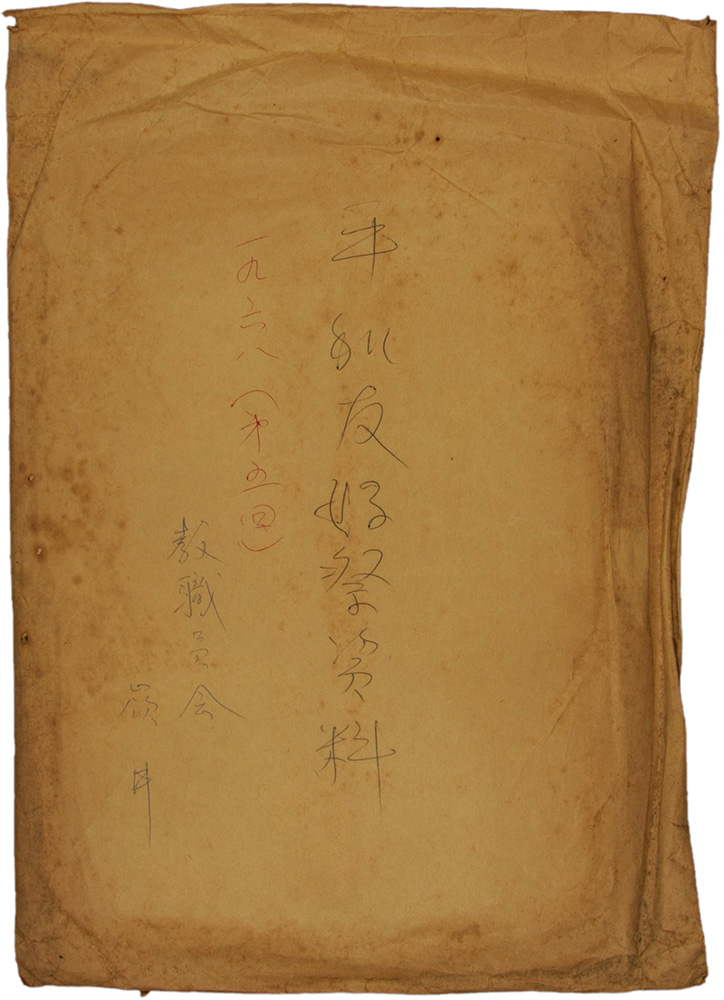 平和友好祭資料
一九六八(第五回)
教職員会
嶺井